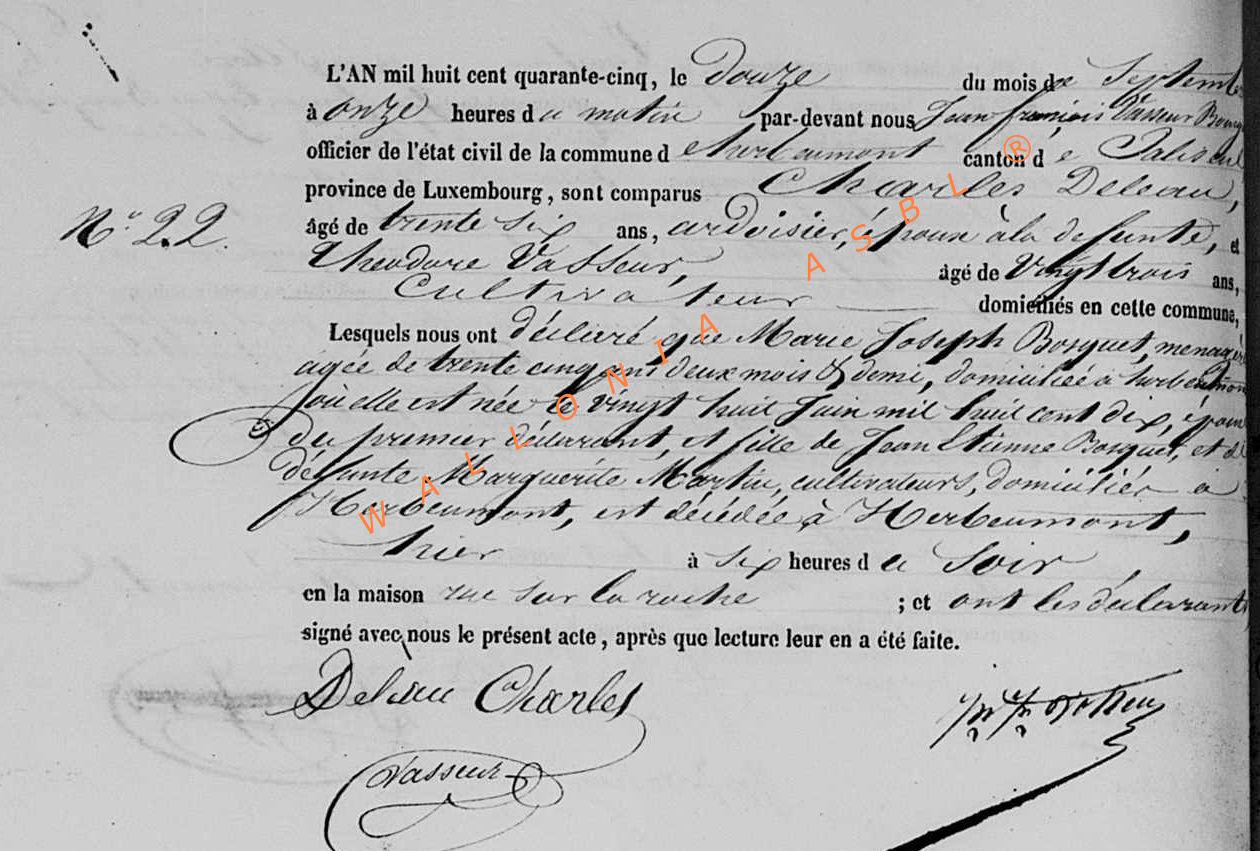 L'AN mil huit cent quarante-cinq, le douze du mois de Septemb
à onze heures du matin par-devant nous Jean françois Vasseur Bourg
officier de l'état civil de la commune d'herbeumont canton de Paliseul
province de Luxembourg, sont comparus Charles Deleau,
N.° 22. âgé de trente six ans, ardoisier, époux à la defunte, et
Theodore Vasseur, âgé de vingt trois ans,
Cultivateur domiciliés en cette commune,
Lesquels nous ont déclaré que Marie Joseph Bosquet, menagèr
agée de trente cinq ans deux mois & demi, domiciliée à herbeumon
où elle est née le vingt huit Juin mil huit cent dix, épou
du premier déclarant, et fille de Jean Etienne Bosquet, et de
défunte Marguerite Martin, cultivateurs, domiciliés à
Herbeumont, est décédée à Herbeumont,
hier à six heures du Soir
en la maison rue sur la roche ; et ont les déclarants
signé avec nous le présent acte, après que lecture leur en a été faite.
Deleau Charles
Vasseur
WALLONIA ASBL ®